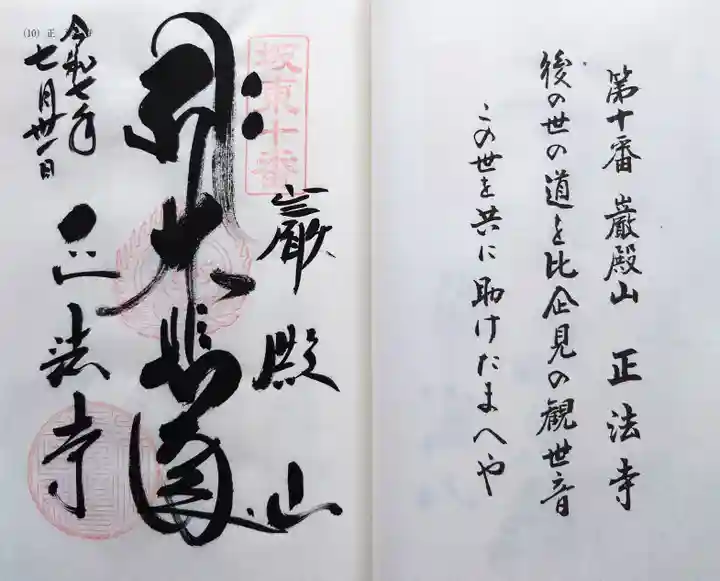 第十番 巌殿山 正法寺
後の世の道を比企見の観世音
この世を共に助けたまへや
坂東十番
巌殿山
大悲閣
正法寺
令和七年
七月卅一日
(10) 正